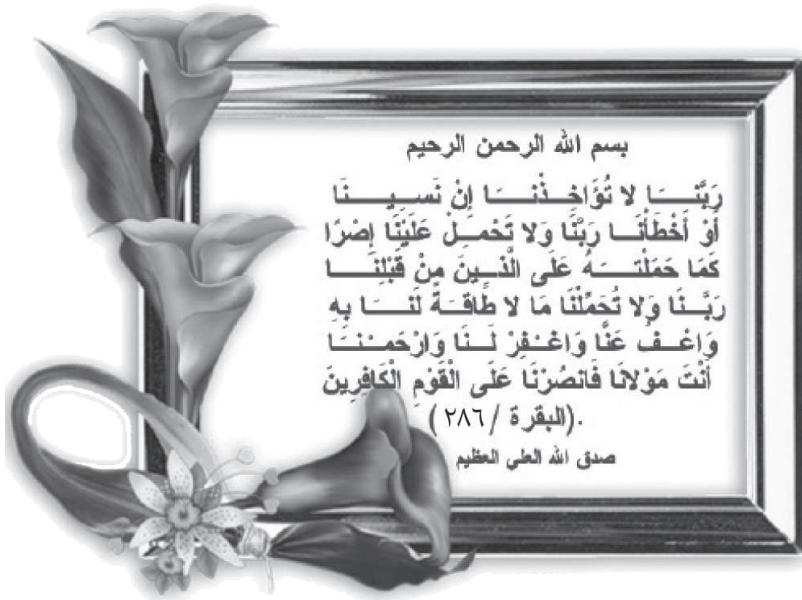 بسم الله الرحمن الرحيم
رَبَّنَا لا تُؤَاخِذْنَا إِنْ نَسِينَا
أَوْ أَخْطَأْنَا رَبَّنَا وَلا تَحْمِلْ عَلَيْنَا إِصْرًا
كَمَا حَمَلْتَهُ عَلَى الَّذِينَ مِنْ قَبْلِنَا
رَبَّنَا وَلا تُحَمِّلْنَا مَا لا طَاقَةَ لَنَا بِهِ
وَاعْفُ عَنَّا وَاغْفِرْ لَنَا وَارْحَمْنَا
أَنْتَ مَوْلانَا فَانصُرْنَا عَلَى الْقَوْمِ الْكَافِرِينَ
(البقرة / ٢٨٦).
صدق الله العلي العظيم